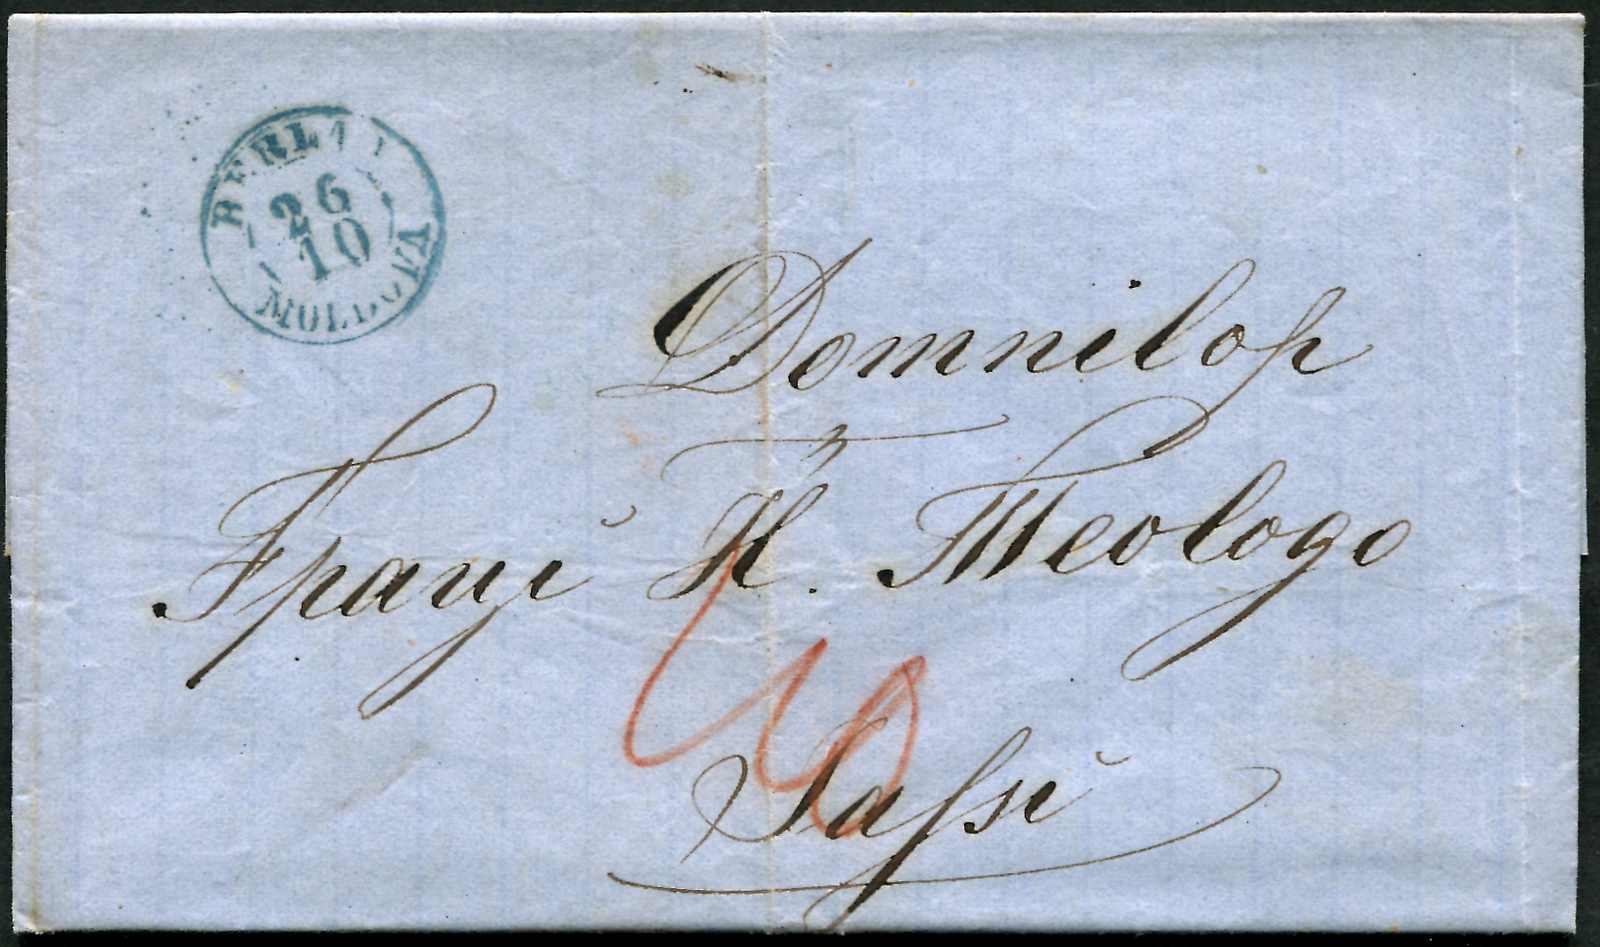 BERLAD
26
10
MOLDOVA
Domniloр
Fрaцĭ K. Teologo
Jassi